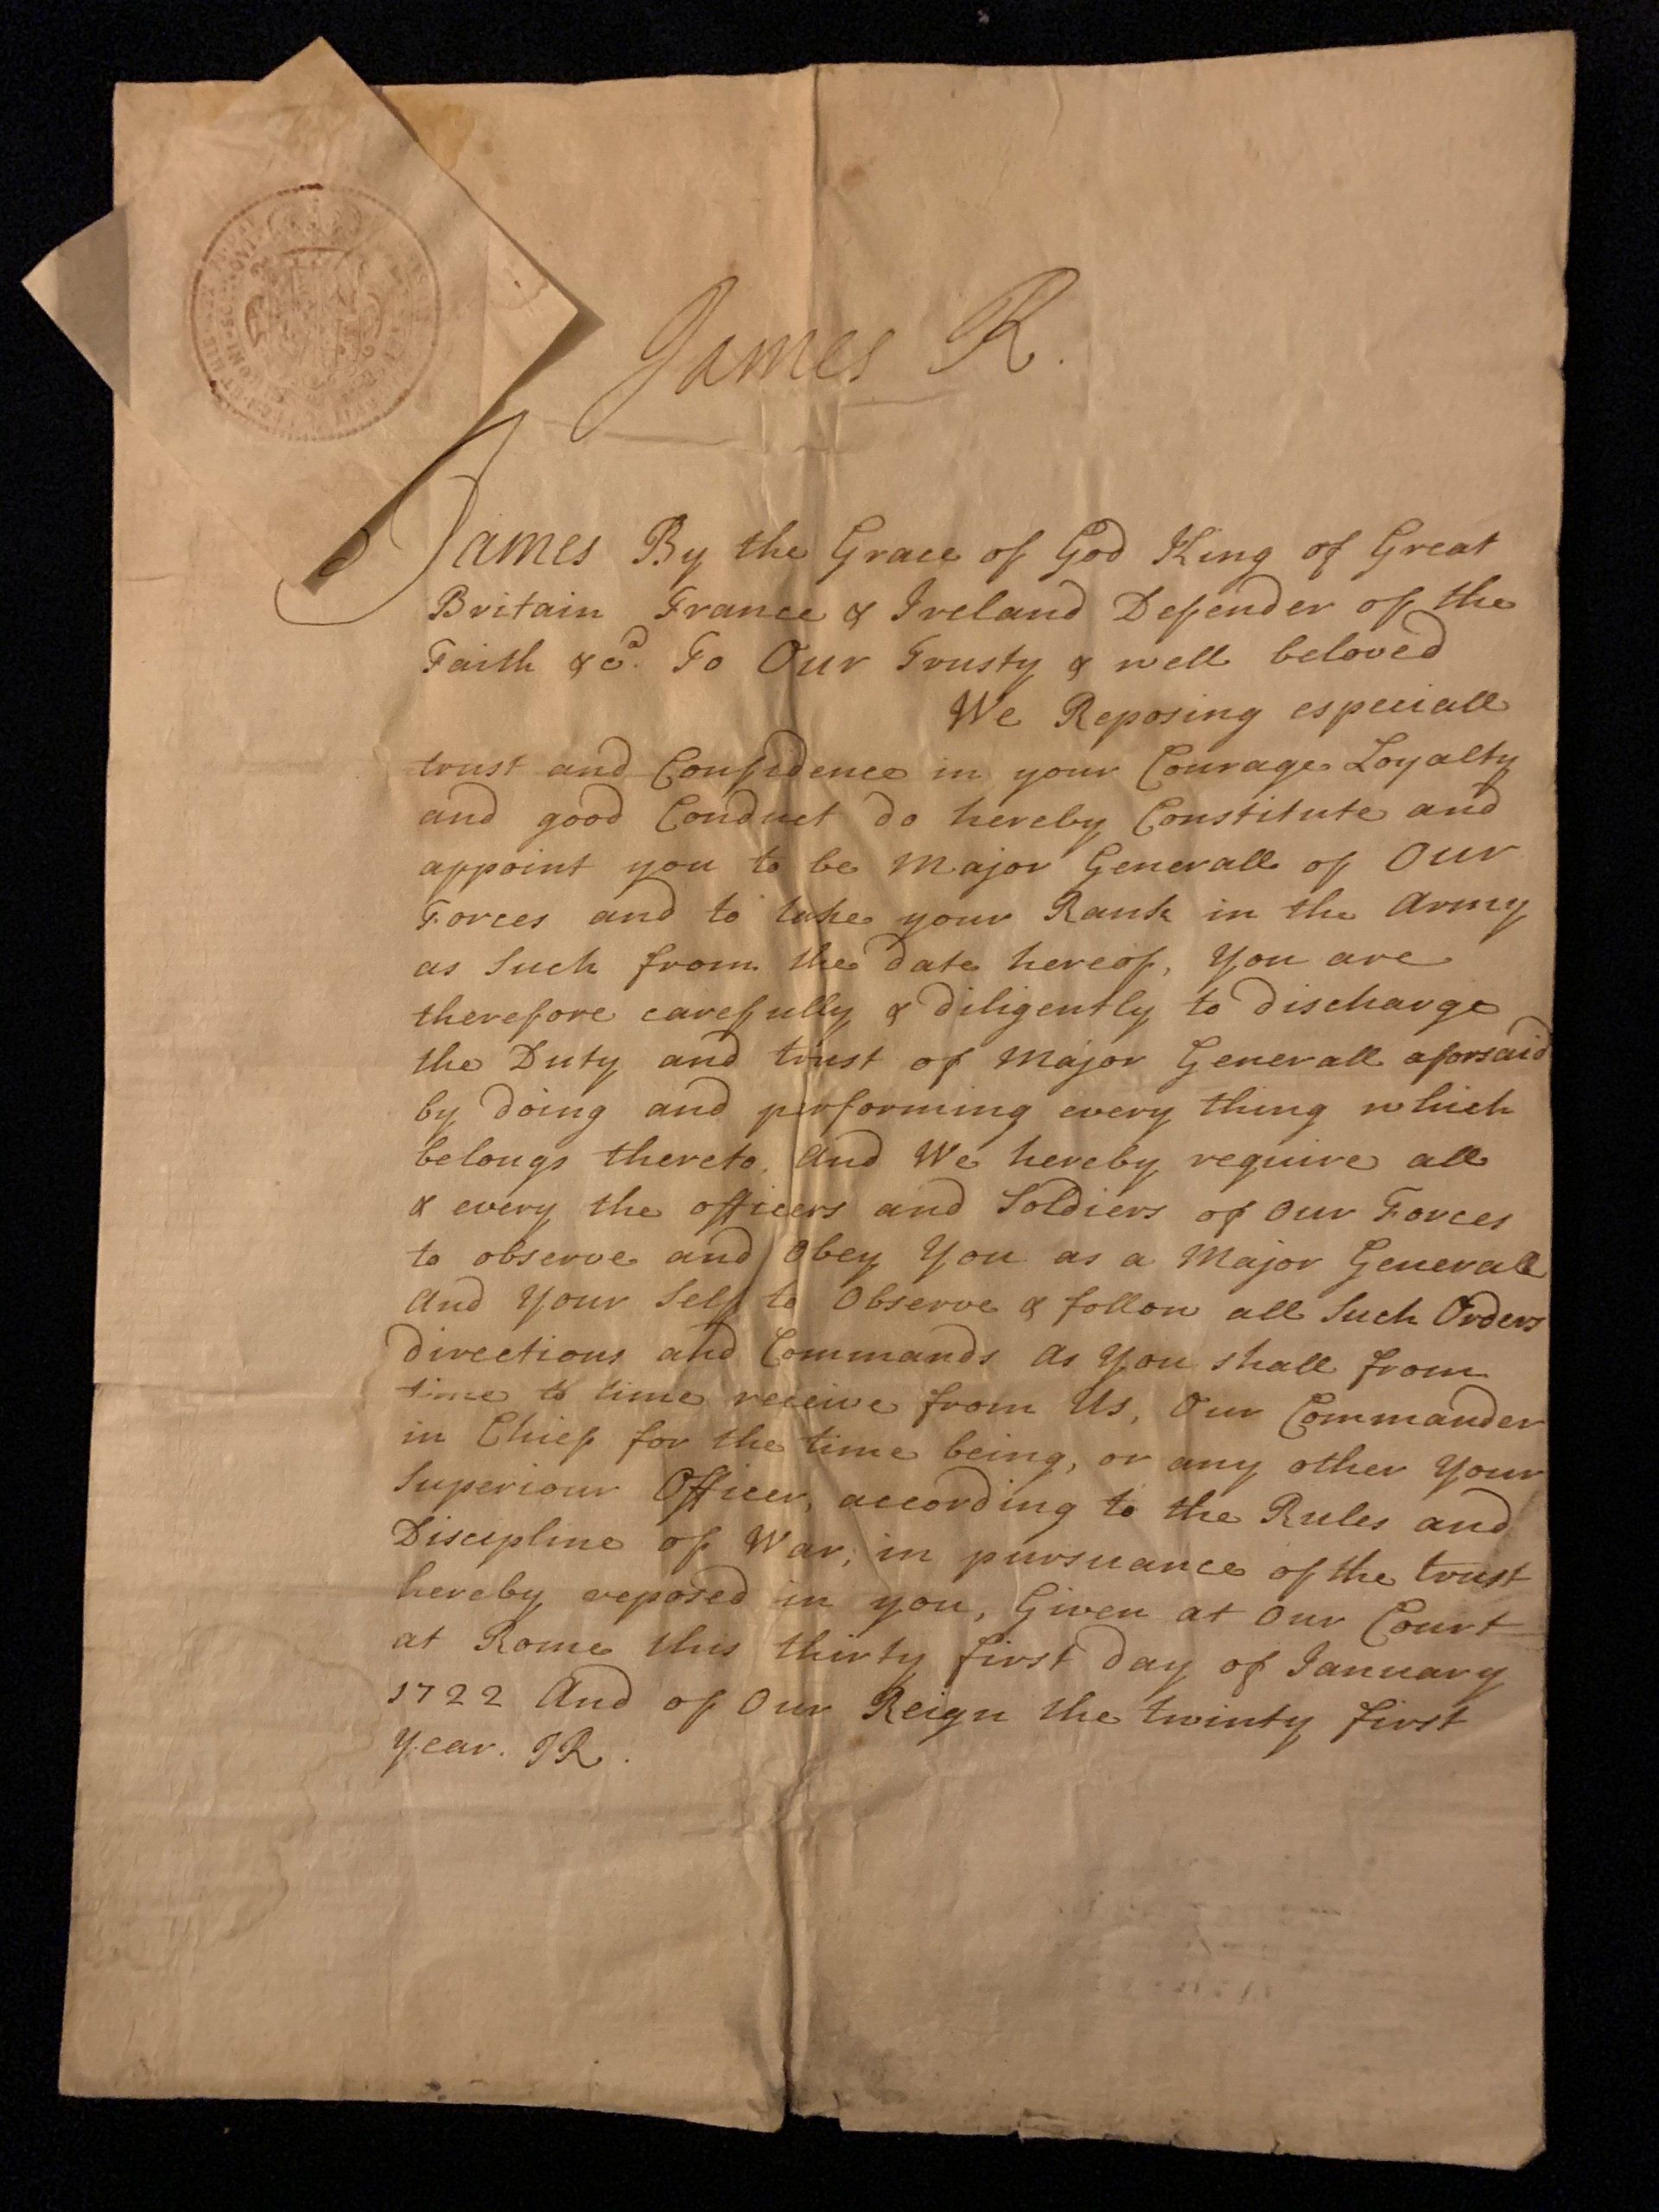 James R.
James By the Grace of God King of Great
Britain France & Ireland Defender of the
Faith &c.a To Our Trusty & well beloved
We Reposing especiall
trust and Confidence in your Courage Loyalty
and good Conduct do hereby Constitute and
appoint you to be Major Generall of Our
Forces and to take your Rank in the Army
as Such from the date hereof, You are
therefore carefully & diligently to discharge
the Duty and trust of Major Generall aforsaid
by doing and performing every thing which
belongs thereto, And We hereby require all
& every the officers and Soldiers of Our Forces
to observe and Obey You as a Major Generall
And Your Self to Observe & follow all Such Orders
directions and Commands As You shall from
time to time receive from Us, Our Commander
in Chief for the time being, or any other Your
Superiour Officer, according to the Rules and
Discipline of War, in pursuance of the trust
hereby reposed in you, Given at Our Court
at Rome this thirty first day of January
1722 And of Our Reign the twinty first
Year. JR.